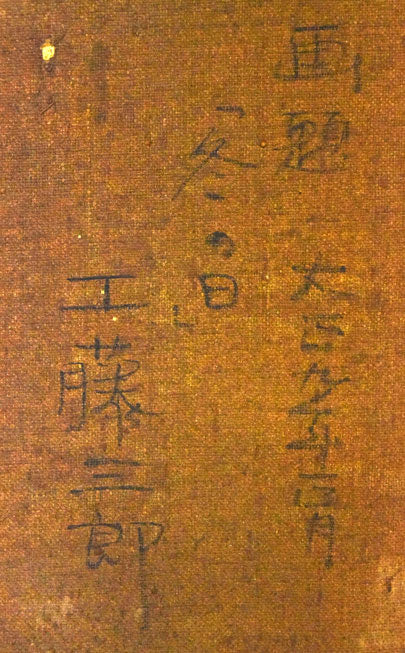 画題 大正九年月
「冬の日」
工藤三郎